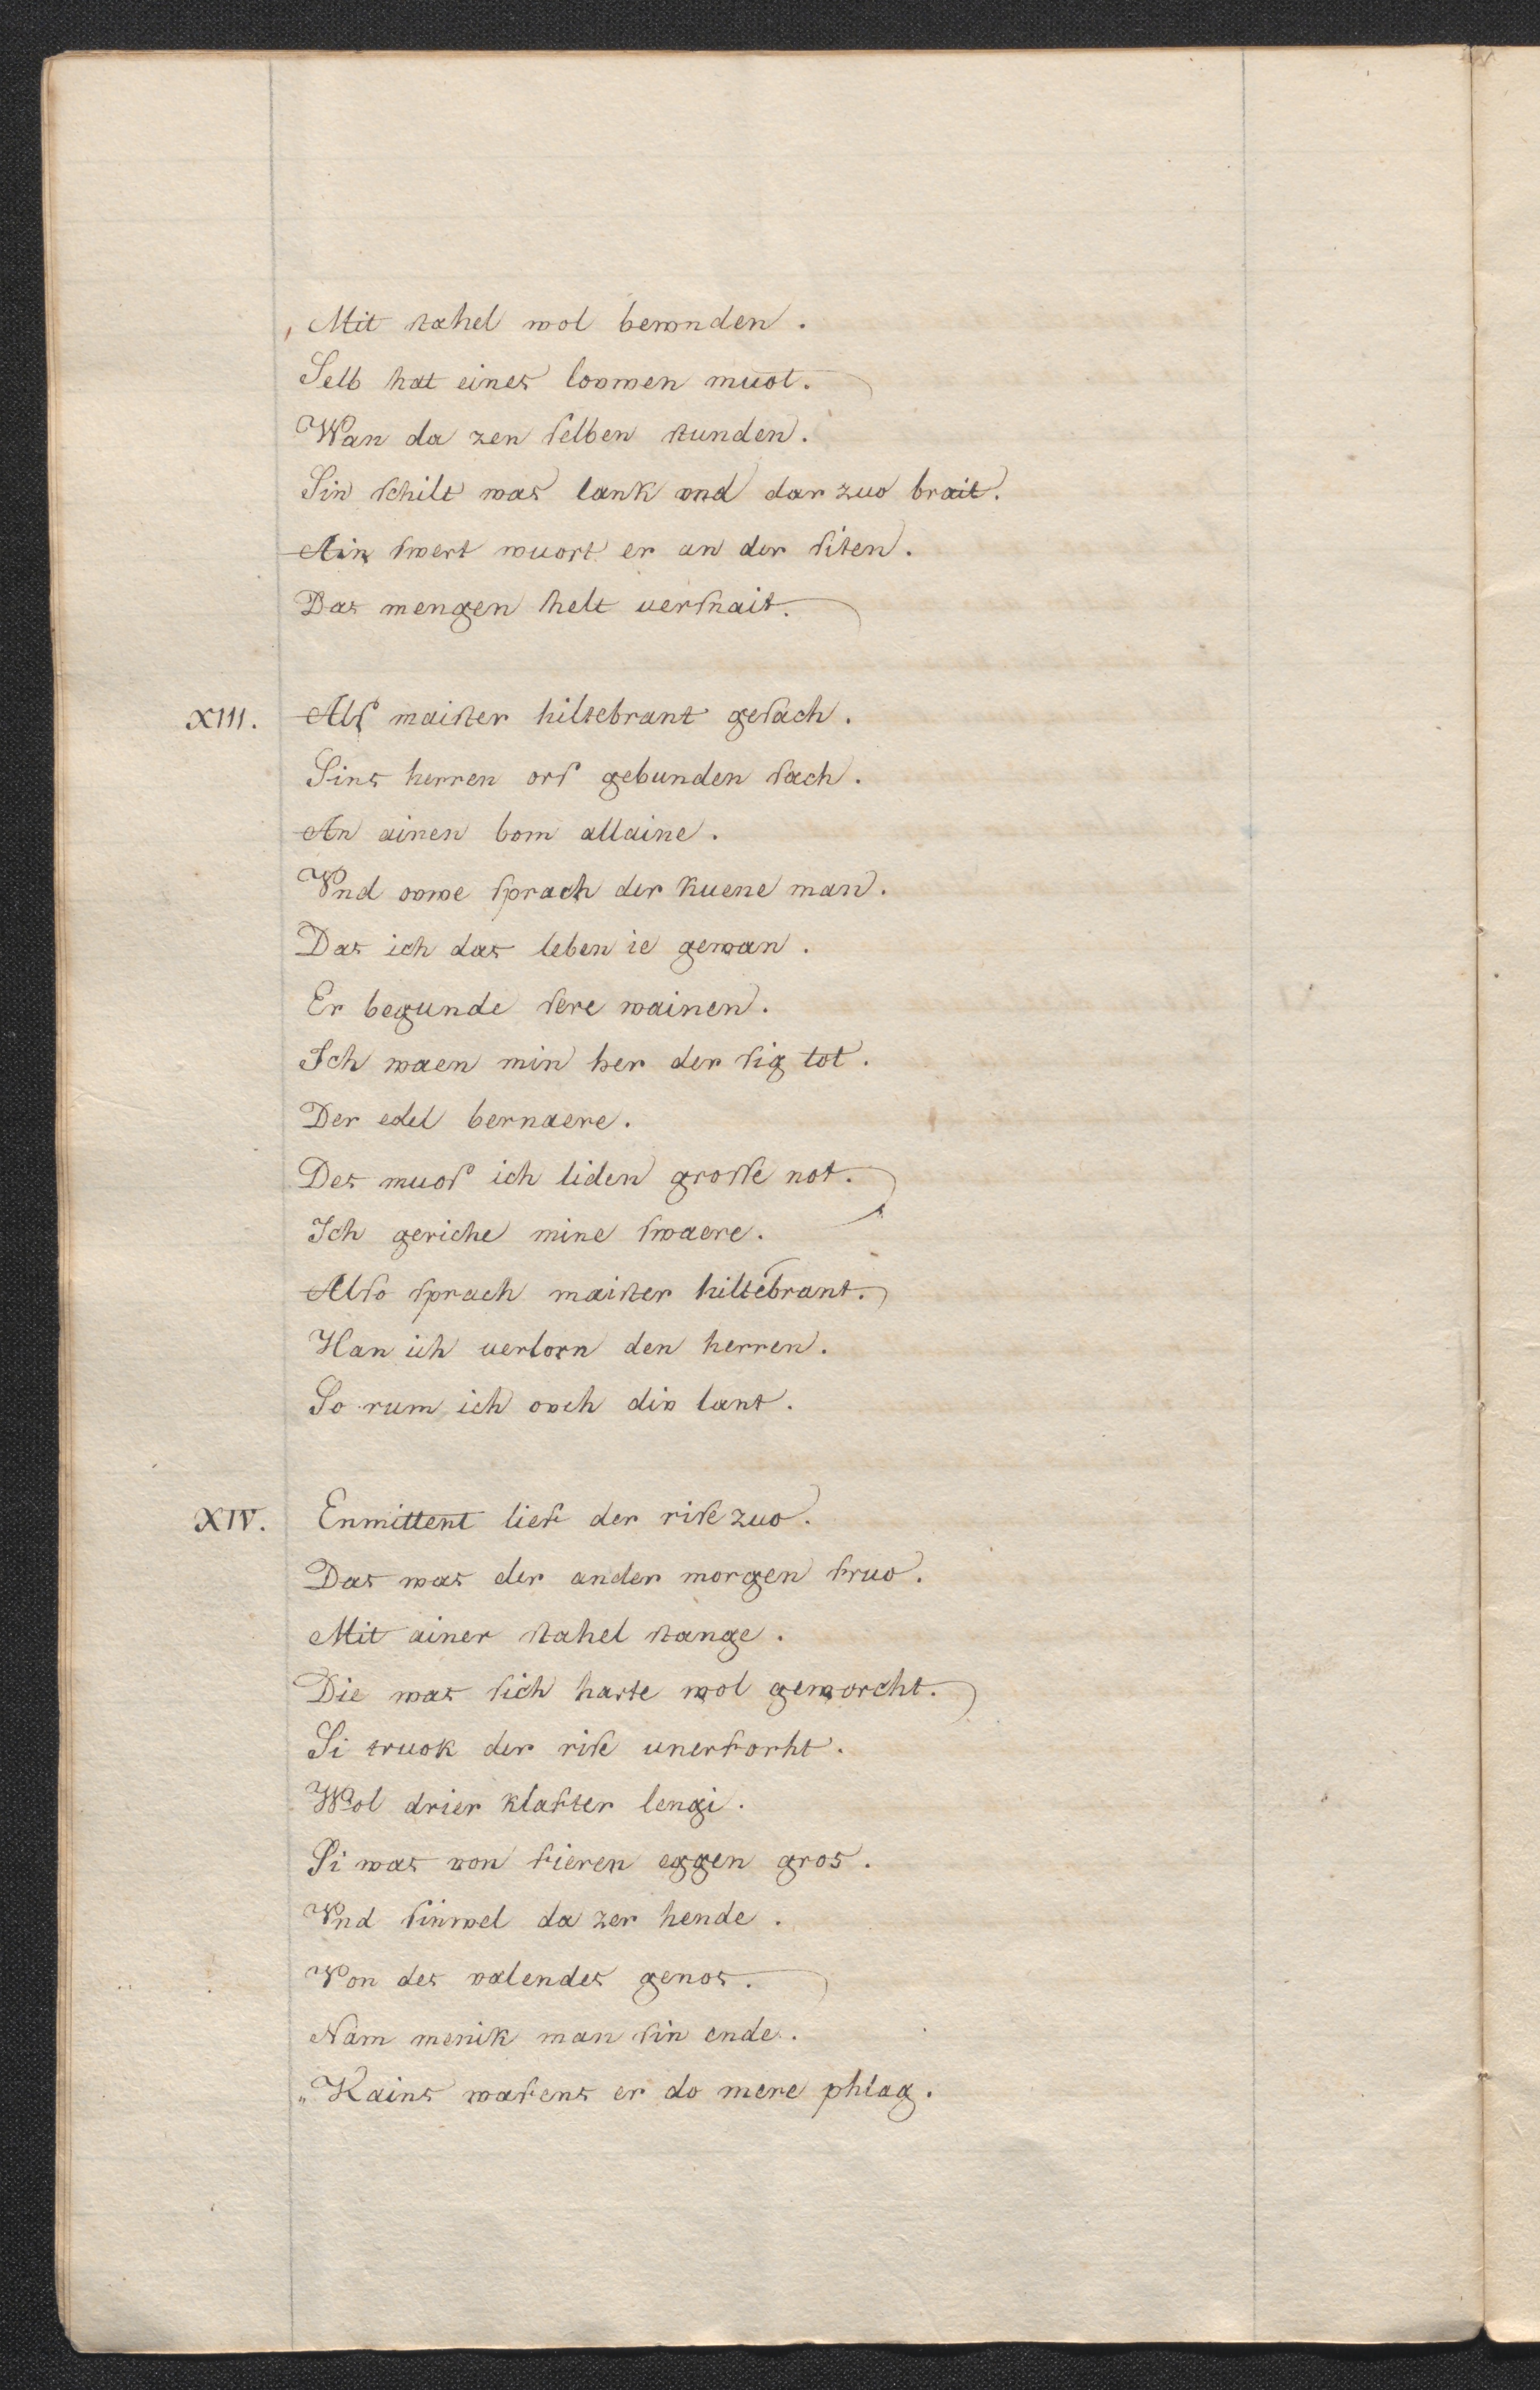 Mit ſtahel wol bewnden.
Selb hat eines lovwen muot.
Wan da zen ſelben ſtunden.
Sin ſchilt was lank vnd dar zuo brait.
Ain ſwert wuort er an der ſiten.
Das mengen helt uerſnait.
XIII. Alſ maiſter hiltebrant geſach.
Sins herren orſ gebunden ſach.
An ainen bom allaine.
Vnd ovwe ſprach der kuene man.
Das ich das leben ie gewan.
Er begunde ſere wainen.
Ich waen min her der ſig tot.
Der edel bernaere.
Des muoſ ich liden groſſe not.
Ich geriche mine ſwaere.
Alſo ſprach maiſter hiltebrant.
Han ich uerlorn den herren.
So rum ich ovch div lant.
XIV. Enmittent lief der riſe zuo.
Das was der ander morgen fruo.
Mit ainer ſtahel ſtange.
Die was ſich harte wol geworcht.
Si truok der riſe unerforht.
Wol drier klafter lengi.
Si was von fieren eggen gros.
Vnd ſinwel da zer hende.
Von des valendes genos.
Nam menik man ſin ende.
„Kains wafens er do mere phlag.